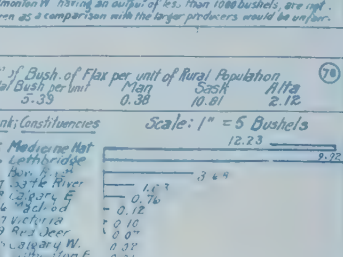 monton W having an output of less than 1000 bushels, are not
en as a comparison with the larger producers would be unfair.
of Bush. of Flax per unit of Rural Population
70
al Bush per unit Man Sask Alta
5.39 0.38 10.81 2.12
nk; Constituencies Scale: 1" = 5 Bushels
Medicine Hat 12.23
Lethbridge 9.92
Bow River 3.68
Battle River
Calgary E. 0.76
Macleod 0.12
Victoria 0.10
Red Deer 0.07
Calgary W.